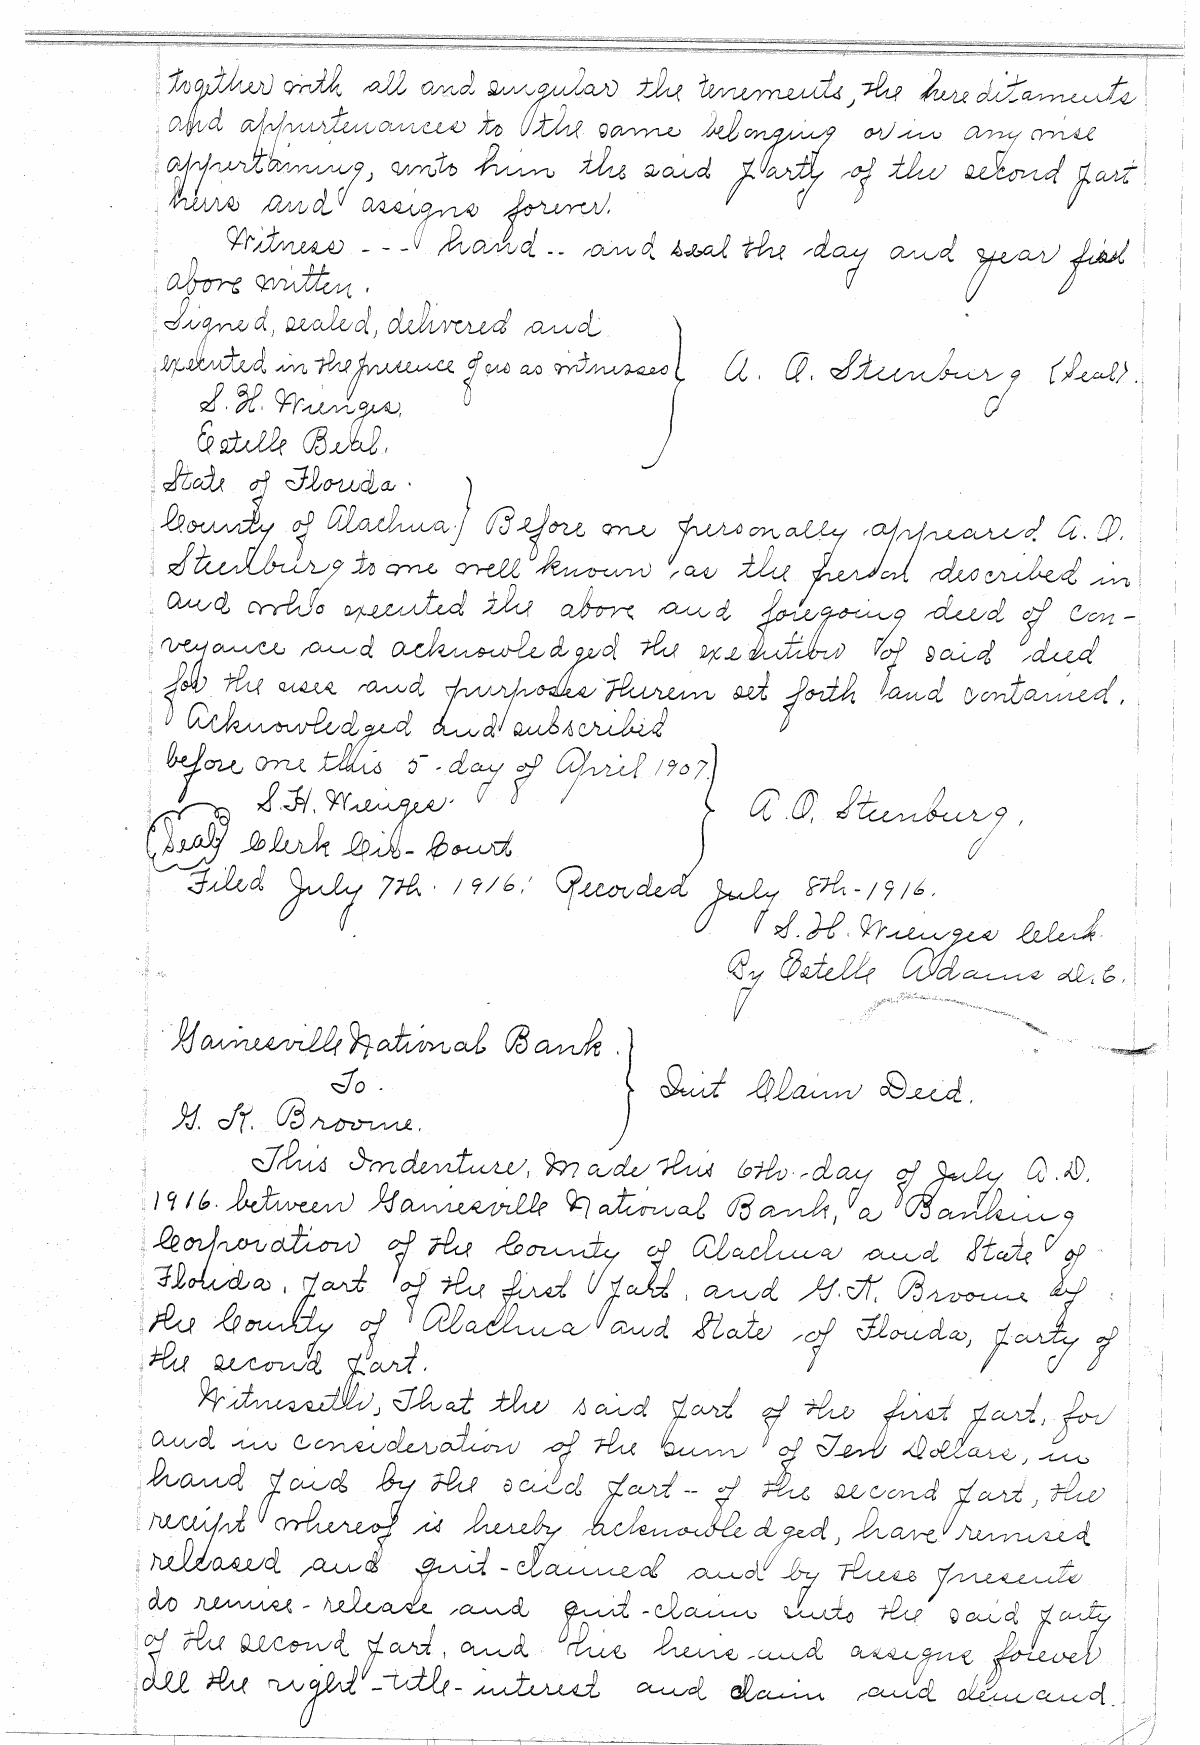 together with all and singular the tenements, the hereditaments
and appurtenances to the same belonging or in any wise
appertaining, unto him the said party of the second part
heirs and assigns forever.
Witness --- hand -- and seal the day and year first
above written.
Signed, sealed, delivered and
executed in the presence of us as witnesses } A. O. Steenburg (Seal).
S. H. Wienges,
Estelle Beal.
State of Florida.
County of Alachua.} Before me personally appeared A. O.
Steenburg to me well known as the person described in
and who executed the above and foregoing deed of con-
veyance and acknowledged the execution of said deed
for the uses and purposes therein set forth and contained.
Acknowledged and subscribed
before me this 5-day of April 1907.
S. H. Wienges. } A. O. Steenburg.
(Seal) Clerk Cir-Court
Filed July 7th. 1916. Recorded July 8th-1916.
S. H. Wienges Clerk.
By Estelle Adams D.C.
Gainesville National Bank.
To. } Quit Claim Deed.
G. K. Broome.
This Indenture, Made this 6th-day of July A.D.
1916. between Gainesville National Bank, a Banking
Corporation of the County of Alachua and State of
Florida, part of the first part, and G. K. Broome of
the County of Alachua and State of Florida, party of
the second part.
Witnesseth, That the said part of the first part, for
and in consideration of the sum of Ten Dollars, in
hand paid by the said part-- of the second part, the
receipt whereof is hereby acknowledged, have remised
released and quit-claimed and by these presents
do remise-release and quit-claim unto the said party
of the second part, and his heirs and assigns forever
all the right-title-interest and claim and demand.